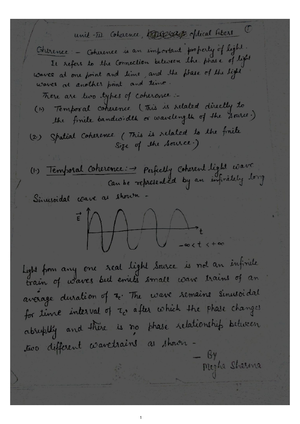 Unit-III Coherence, optical fibers
Coherence - Coherence is an important property of light.
It refers to the connection between the phase of light
wave at one point and time, and the phase of the light
wave at another point and time.
There are two types of coherence -
(1) Temporal coherence (This is related directly to
the finite bandwidth or wavelength of the source.)
(2) Spatial coherence (This is related to the finite
size of the source.)
(1) Temporal Coherence:→ Perfectly coherent light wave
can be represented by an infinitely long
Sinusoidal wave as shown -
E
t
-∞ < t < +∞
Light from any one real light source is not an infinite
train of waves but emits small wave trains of an
average duration of τ₀. The wave remains sinusoidal
for time interval of τ₀, after which the phase changes
abruptly and there is no phase relationship between
two different wavetrains as shown -
— By
Megha Sharma